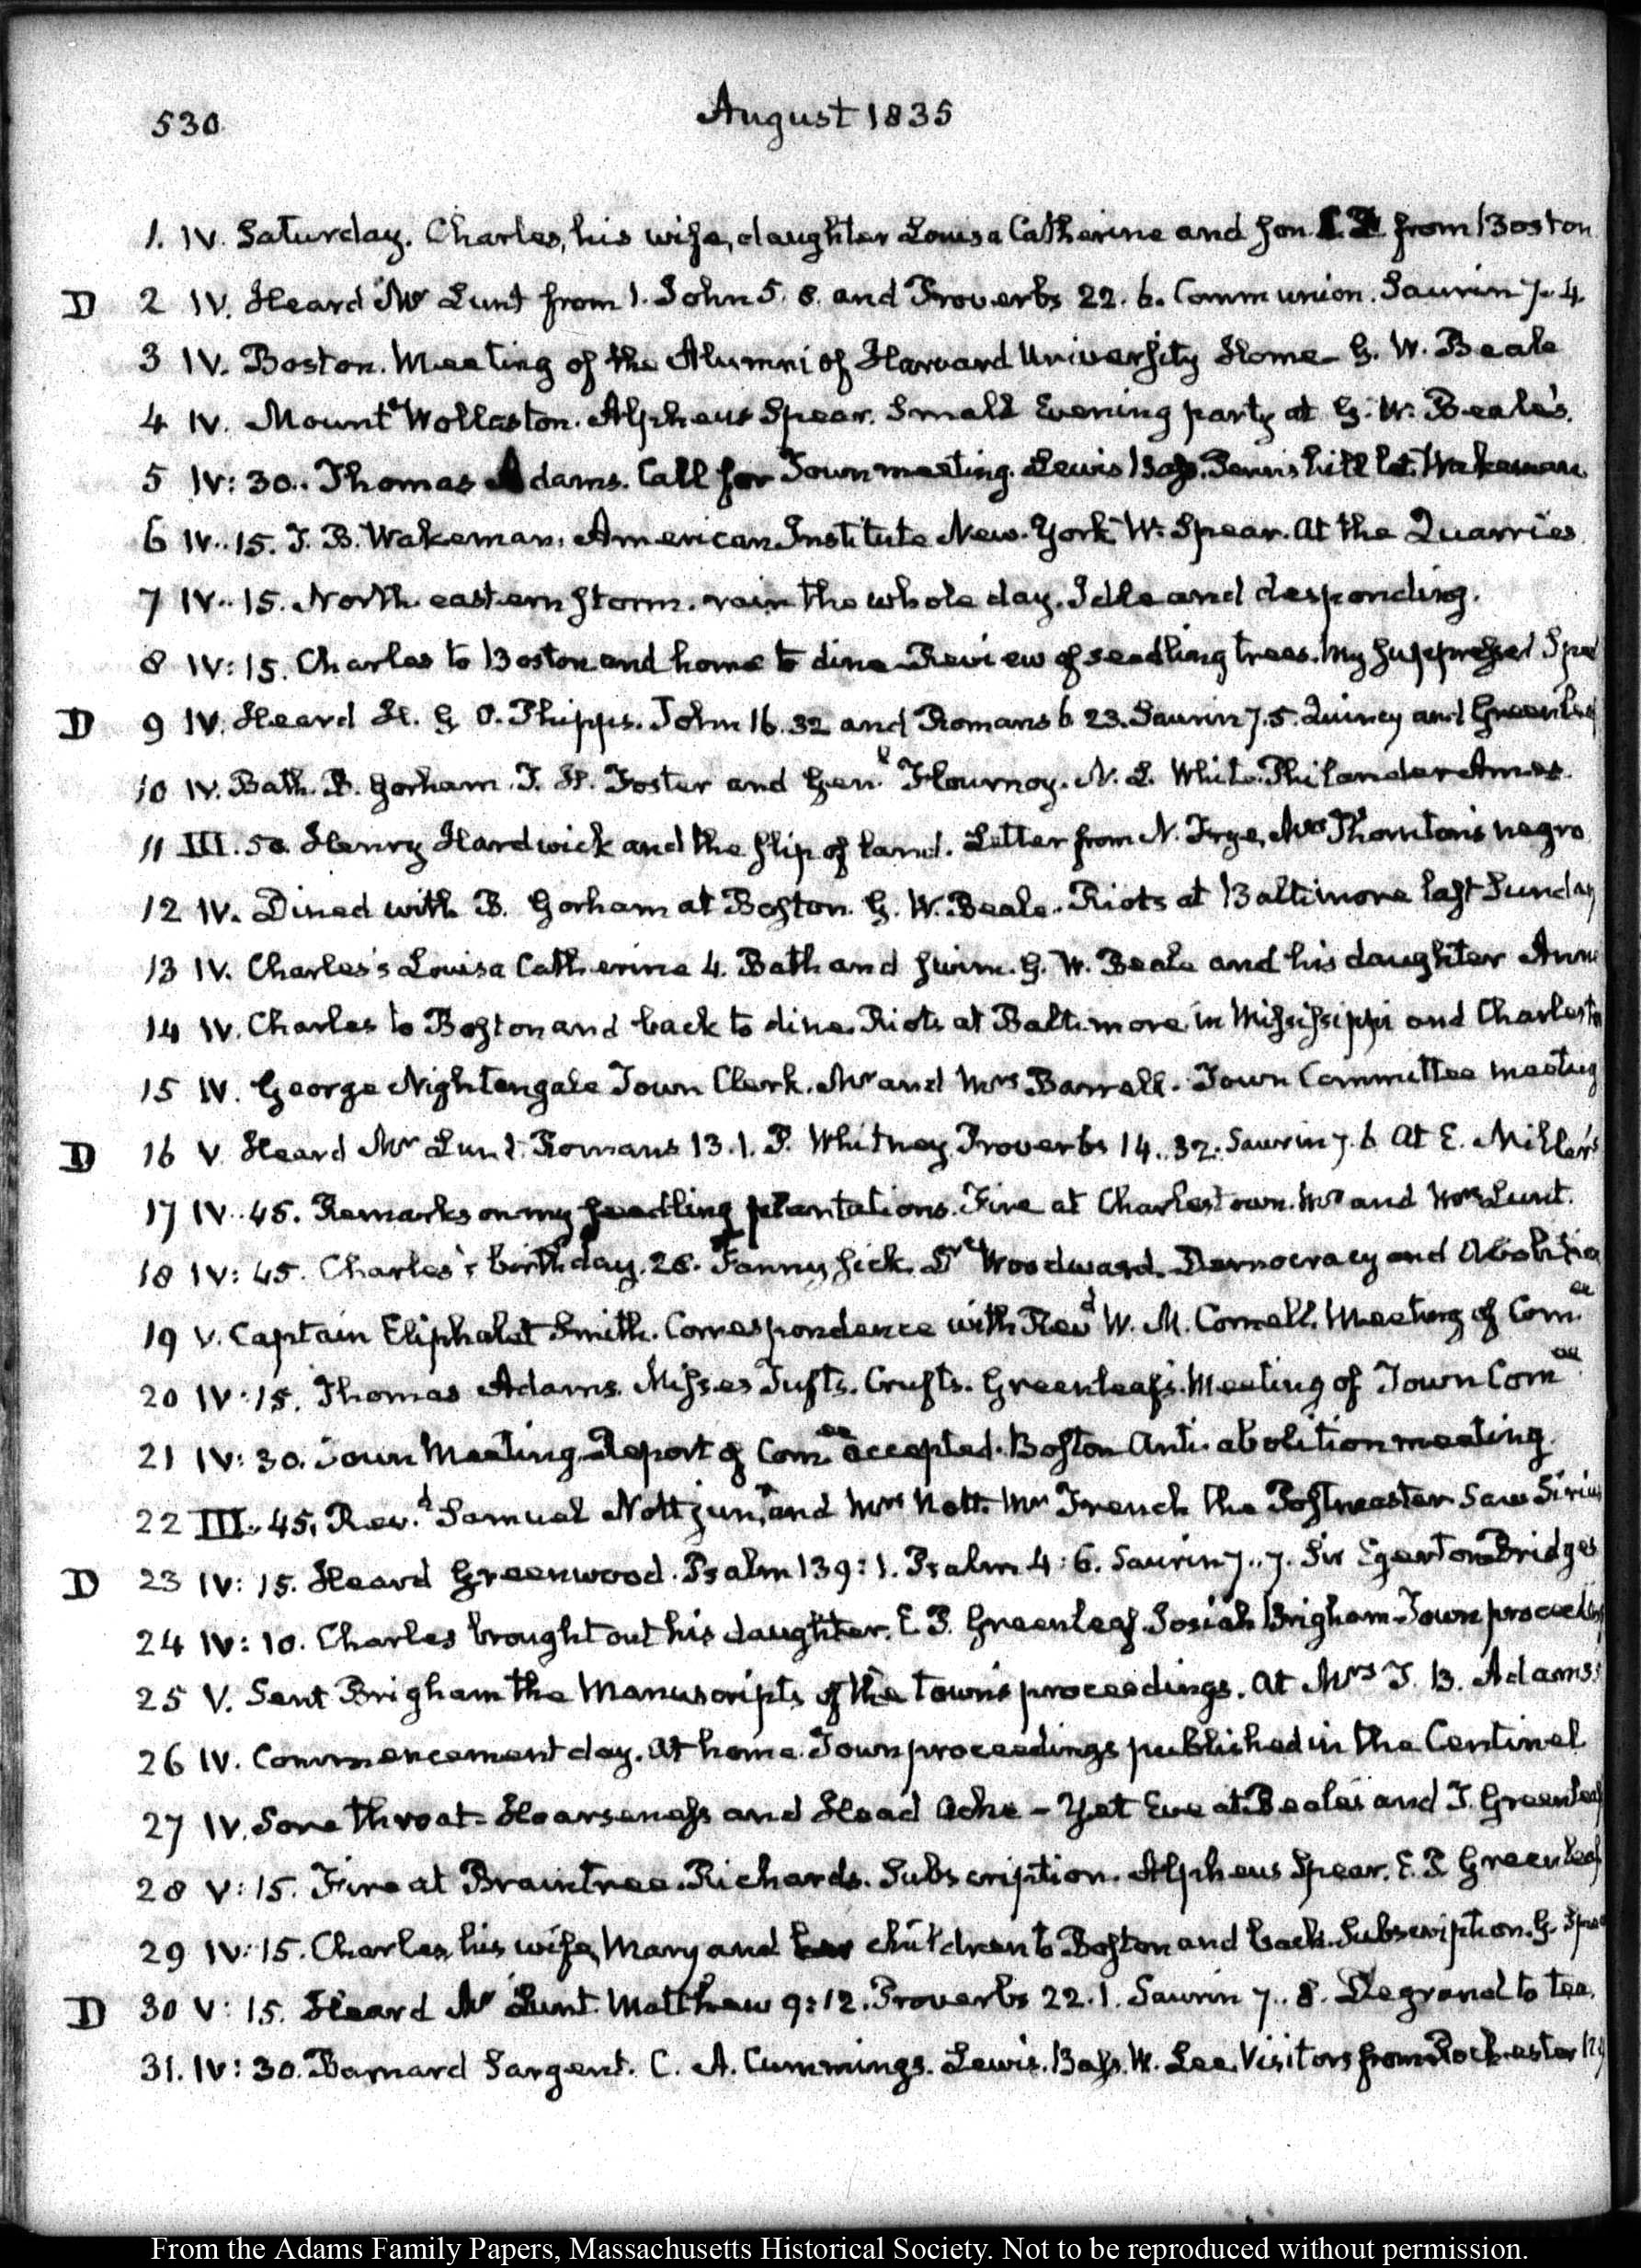 530
August 1835
1. IV. Saturday. Charles, his wife, daughter Louisa Catherine and son from Boston
D 2 IV. Heard Mr Lunt from 1. John 5. 8. and Proverbs 22. 6. Communion. Saurin 7.. 4.
3 IV. Boston. Meeting of the Alumni of Harvard University Home- G. W. Beale
4 IV. Mount Wollaston. Alpheus Spear. Small Evening party at G. W. Beale's.
5 IV: 30.. Thomas Adams. Call for Town meeting. Lewis Bass. Penns hill lot. Wakeman
6 IV.. 15. T. B. Wakeman. American Institute New-York W. Spear. At the Quarries
7 IV.. 15. North eastern storm. rain the whole day. Idle and desponding.
8 IV: 15. Charles to Boston and home to dine Review of seedling trees. My suppressed Spe
D 9 IV. Heard H. G O. Phipps. John 16. 32 and Romans 6 23. Saurin 7. 5. Quincy and Greenleaf
10 IV. Bath. B. Gorham. T. H. Foster and Genl Flournoy. N. L. White. Philander Ames.
11 III. 50. Henry Hardwick and the slip of land. Letter from N. Frye, Mrs Thornton's negro
12 IV. Dined with B. Gorham at Boston. G. W. Beale. Riots at Baltimore last Sunday
13 IV. Charles's Louisa Catherine 4. Bath and swim. G. W. Beale and his daughter Anne
14 IV. Charles to Boston and back to dine. Riots at Baltimore in Mississippi and Charlesto
15 IV. George Nightengale Town Clerk. Mr and Mrs Barrell. Town Committee meeting
D 16 V. Heard Mr Lunt. Romans 13. 1. P. Whitney Proverbs 14.. 32. Saurin 7. 6 At E. Miller's
17 IV.. 45. Remarks on my seedling plantations. Fire at Charlestown. Mr and Mrs Lunt.
18 IV: 45. Charles's birthday. 28. Fanny sick. Dr Woodward. Democracy and Abolitio
19 V. Captain Eliphalet Smith. Correspondence with Revd W. M. Cornell. Meeting of Comee
20 IV: 15. Thomas Adams. Misses Tufts. Crufts. Greenleafs. Meeting of Town Comee
21 IV: 30. Town Meeting. Report of Comee accepted. Boston Anti-abolition meeting.
22 III.. 45. Rev.d Samuel Nott junr and Mrs Nott. Mr French the Postmaster Saw Sirius
D 23 IV: 15. Heard Greenwood. Psalm 139: 1. Psalm 4: 6. Saurin 7.. 7. Sir Egerton Bridges
24 IV: 10. Charles brought out his daughter. E P. Greenleaf. Josiah Brigham Town proceedin
25 V. Sent Brigham the Manuscripts of the town's proceedings. At Mrs T. B. Adams's
26 IV. Commencement day. At home. Town proceedings published in the Centinel
27 IV. Sore throat- Hoarseness and Head Ache - Yet Eve at Beale's and T. Greenleaf
28 V: 15. Fire at Braintree. Richards. Subscription. Alpheus Spear. E. P. Greenleaf
29 IV: 15. Charles, his wife, Mary and her children to Boston and back. Subscription. G. Spea
D 30 V: 15. Heard Mr Lunt. Matthew 9: 12. Proverbs 22. 1. Saurin 7.. 8. Degrand to tea.
31. IV: 30. Barnard Sargent. C. A. Cummings. Lewis. Bass. W. Lee. Visitors from Rochester
From the Adams Family Papers, Massachusetts Historical Society. Not to be reproduced without permission.